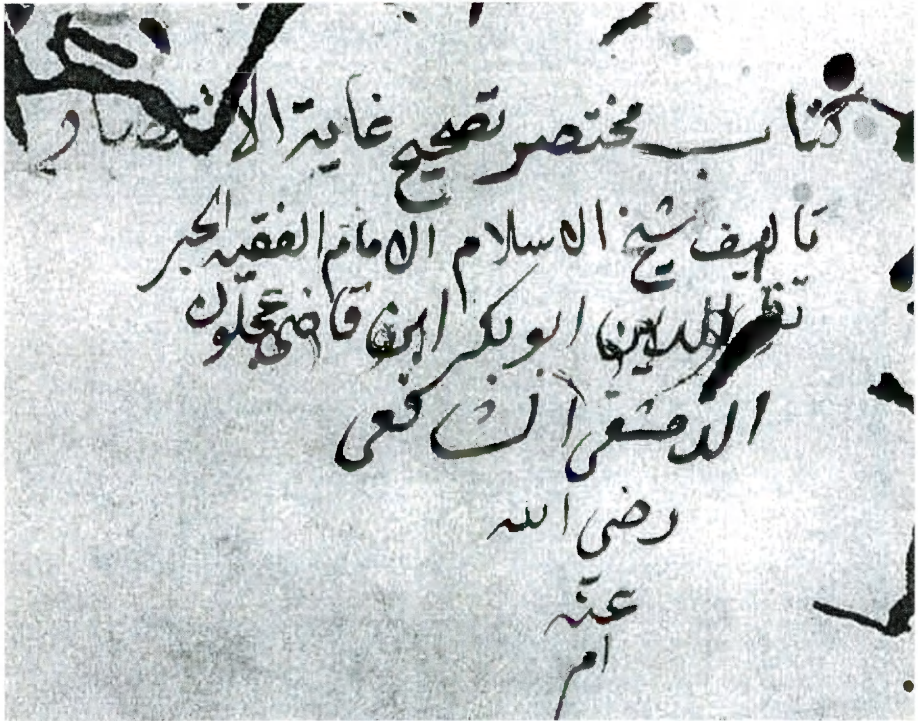 كتاب مختصر تصحيح غاية الاختصار
تاليف شيخ الاسلام الامام الفقيه الحبر
تقى الدين ابو بكر ابن قاضى عجلون
الدمشقى الشافعى
رضى الله
عنه
ام